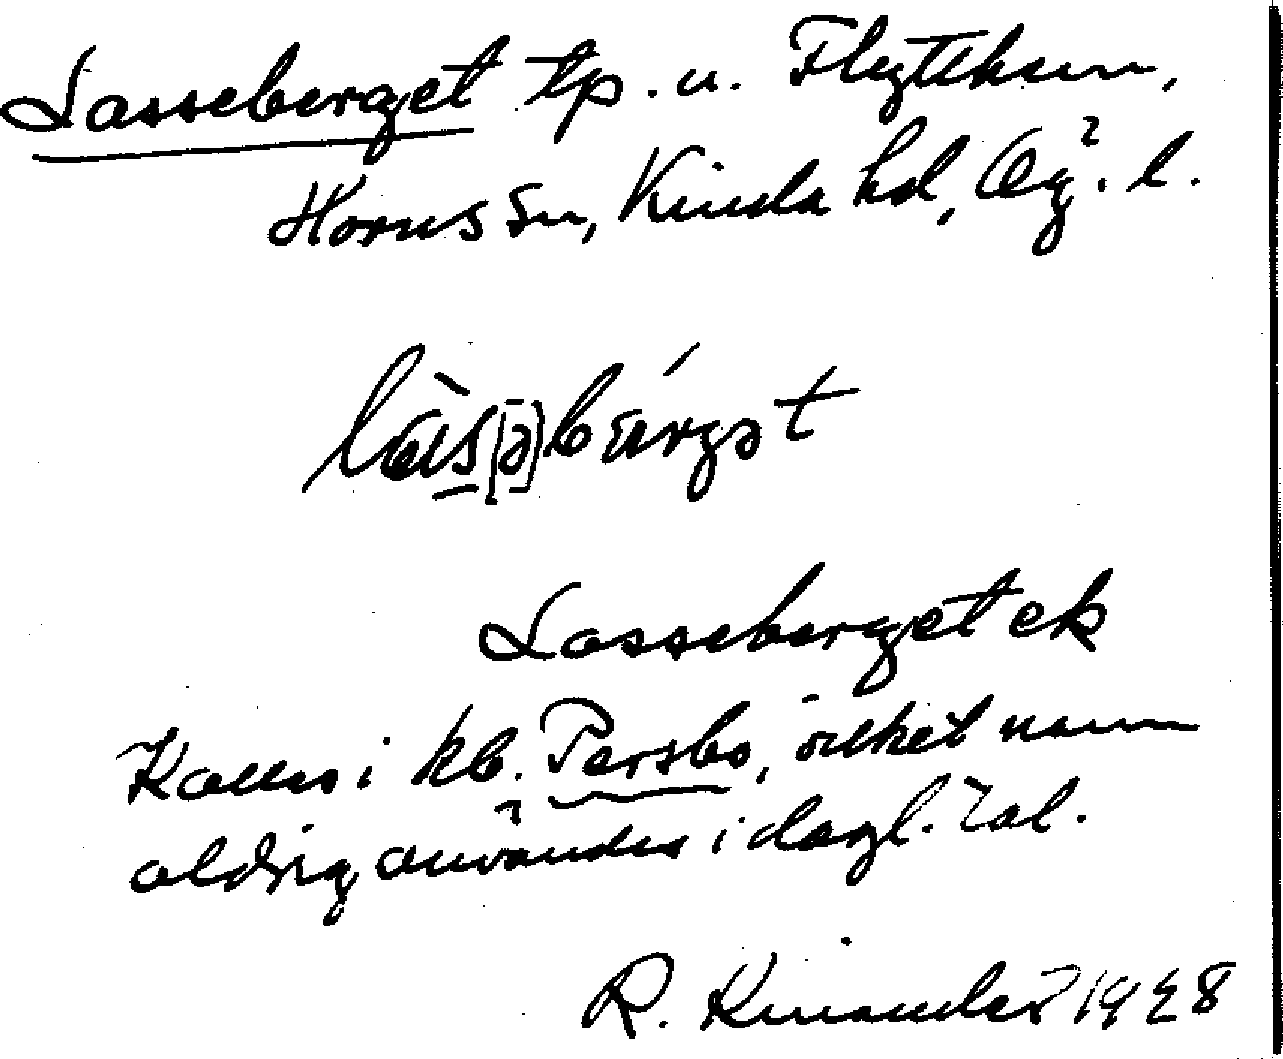 Lasseberget tp. u. Flyttkum,
Horns sn, Kinda hd, Ög. l.
làs[ə]bárgət
Lasseberget ek
Kallas i kb. Persbo, vilket namn
aldrig användes i dagl. tal.
R. Kinander 1928